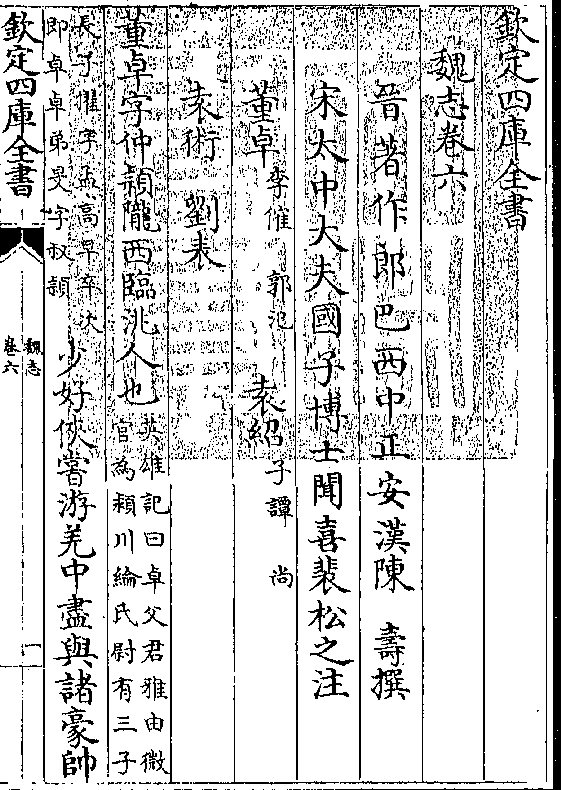 欽定四庫全書
魏志卷六
晉著作郎巴西中正安漢陳 壽撰
宋太中大夫國子博士聞喜裴松之注
董卓 李傕 郭汜 袁紹 子譚 尚
袁術 劉表
董卓字仲穎隴西臨洮人也 英雄記曰卓父君雅由微
官為穎川綸氏尉有三子
長子擢字孟高早卒次
即卓卓弟旻字叔穎
少好俠嘗游羌中盡與諸豪帥
欽定四庫全書
魏志
卷六
一